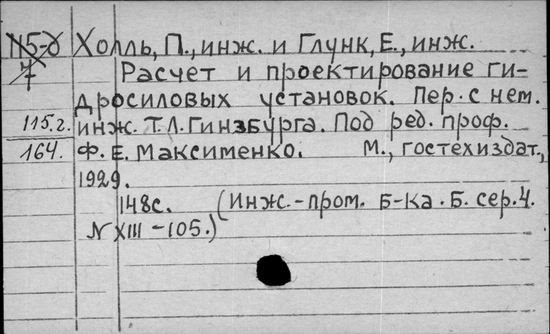 115-д Холль, П., инж. и Глунк, Е., инж.
7 Расчет и проектирование ги-
дросиловых установок. Пер. с нем.
115.г. инж. Т.Л. Гинзбурга. Под ред. проф.
164. Ф. Е. Максименко. М., гостехиздат,
1929.
148с. (Инж.-пром. Б-ка. Б. сер. 4.
N XIII -105.)